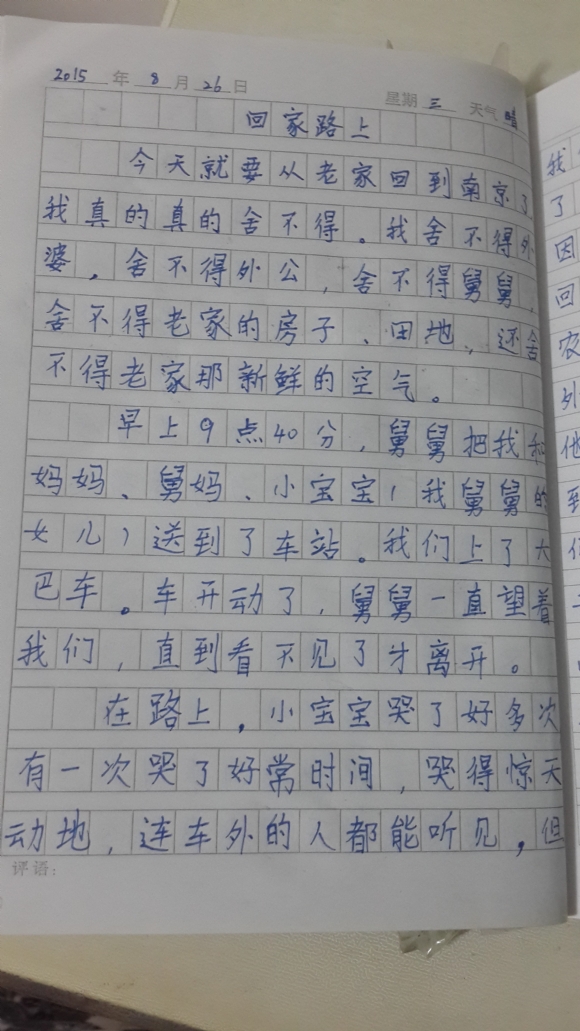 2015 年 8 月 26 日 星期 三 天气 晴
回家路上
今天就要从老家回到南京了
我真的真的舍不得。我舍不得外
婆，舍不得外公，舍不得舅舅，
舍不得老家的房子、田地、还舍
不得老家那新鲜的空气。
早上9点40分，舅舅把我和
妈妈、舅妈、小宝宝（我舅舅的
女儿）送到了车站。我们上了大
巴车。车开动了，舅舅一直望着
我们，直到看不见了才离开。
在路上，小宝宝哭了好多次
有一次哭了好常时间，哭得惊天
动地，连车外的人都能听见，但
评语：
我
了
因
回
农
外
他
到